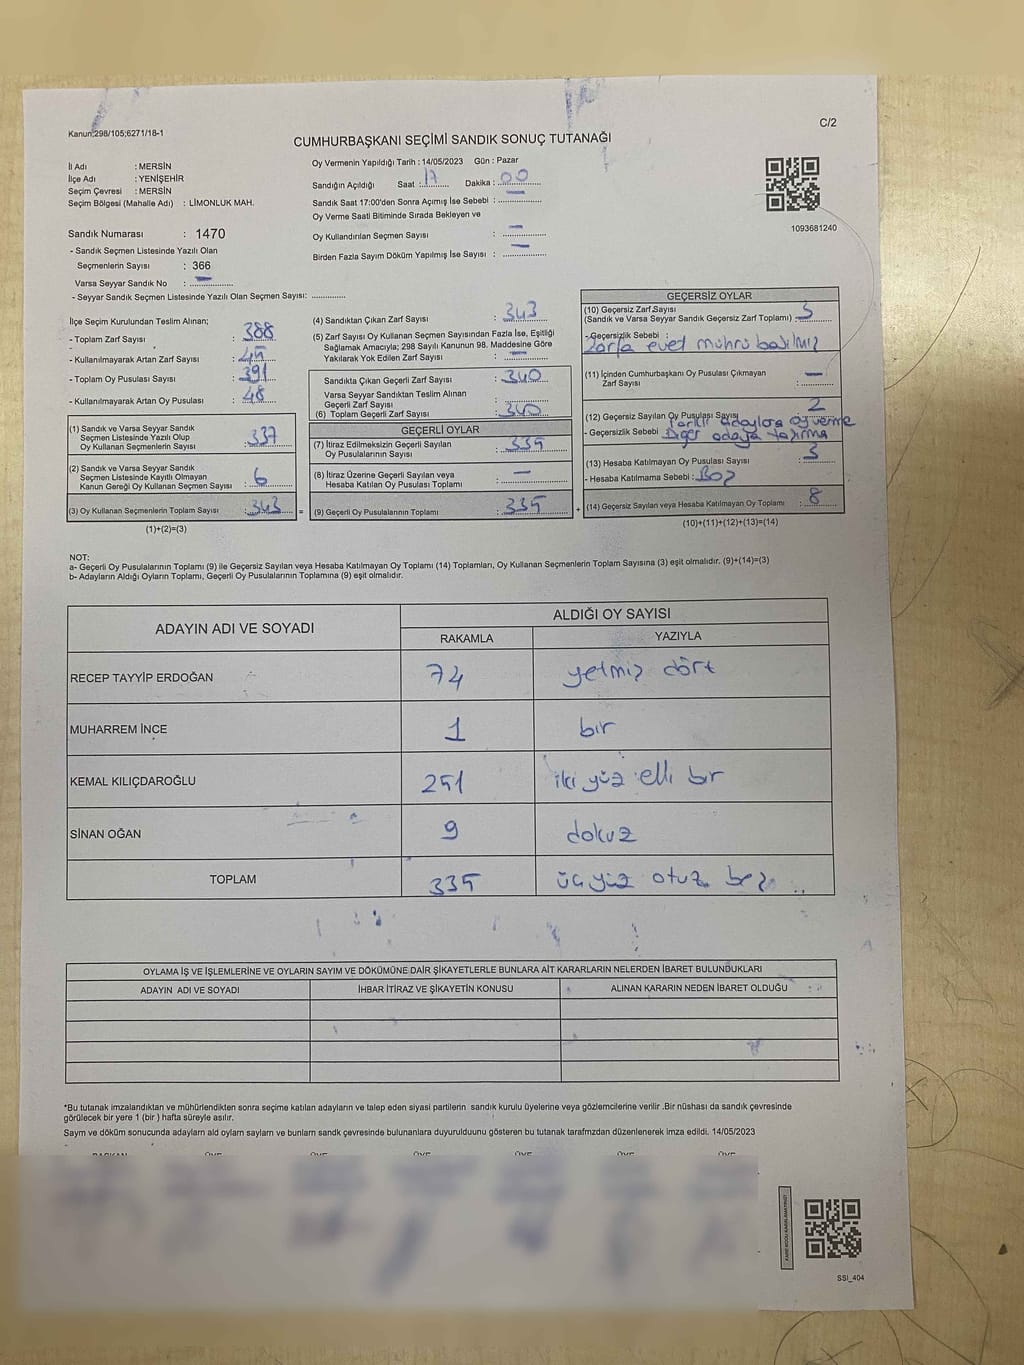 Kanun:298/105;6271/18-1
C/2
CUMHURBAŞKANI SEÇİMİ SANDIK SONUÇ TUTANAĞI
İl Adı : MERSİN
İlçe Adı : YENİŞEHİR
Seçim Çevresi : MERSİN
Seçim Bölgesi (Mahalle Adı) : LİMONLUK MAH.
Sandık Numarası : 1470
- Sandık Seçmen Listesinde Yazılı Olan
Seçmenlerin Sayısı : 366
Varsa Seyyar Sandık No : —
- Seyyar Sandık Seçmen Listesinde Yazılı Olan Seçmen Sayısı: ..............
Oy Vermenin Yapıldığı Tarih : 14/05/2023 Gün : Pazar
Sandığın Açıldığı Saat : 17 Dakika : 00
Sandık Saat 17:00'den Sonra Açımış İse Sebebi : —
Oy Verme Saati Bitiminde Sırada Bekleyen ve
Oy Kullandırılan Seçmen Sayısı : —
Birden Fazla Sayım Döküm Yapılmış İse Sayısı : —
1093681240
İlçe Seçim Kurulundan Teslim Alınan;
- Toplam Zarf Sayısı : 388
- Kullanılmayarak Artan Zarf Sayısı : 45
- Toplam Oy Pusulası Sayısı : 391
- Kullanılmayarak Artan Oy Pusulası : 48
(1) Sandık ve Varsa Seyyar Sandık
Seçmen Listesinde Yazılı Olup
Oy Kullanan Seçmenlerin Sayısı : 337
(2) Sandık ve Varsa Seyyar Sandık
Seçmen Listesinde Kayıtlı Olmayan
Kanun Gereği Oy Kullanan Seçmen Sayısı : 6
(3) Oy Kullanan Seçmenlerin Toplam Sayısı : 343 =
(1)+(2)=(3)
(4) Sandıktan Çıkan Zarf Sayısı : 343
(5) Zarf Sayısı Oy Kullanan Seçmen Sayısından Fazla İse, Eşitliği
Sağlamak Amacıyla; 298 Sayılı Kanunun 98. Maddesine Göre
Yakılarak Yok Edilen Zarf Sayısı : —
Sandıkta Çıkan Geçerli Zarf Sayısı : 340
Varsa Seyyar Sandıktan Teslim Alınan
Geçerli Zarf Sayısı
(6) Toplam Geçerli Zarf Sayısı : 340
GEÇERLİ OYLAR
(7) İtiraz Edilmeksizin Geçerli Sayılan
Oy Pusulalarının Sayısı : 335
(8) İtiraz Üzerine Geçerli Sayılan veya
Hesaba Katılan Oy Pusulası Toplamı : —
(9) Geçerli Oy Pusulalarının Toplamı : 335 +
GEÇERSİZ OYLAR
(10) Geçersiz Zarf Sayısı
(Sandık ve Varsa Seyyar Sandık Geçersiz Zarf Toplamı) : 3
-Geçersizlik Sebebi : Zarfa evet mührü basılmış
(11) İçinden Cumhurbaşkanı Oy Pusulası Çıkmayan
Zarf Sayısı : —
(12) Geçersiz Sayılan Oy Pusulası Sayısı 2
- Geçersizlik Sebebi Farklı adaylara oy verme
Diğer adaya taşırma
(13) Hesaba Katılmayan Oy Pusulası Sayısı : 3
- Hesaba Katılmama Sebebi : Boş
(14) Geçersiz Sayılan veya Hesaba Katılmayan Oy Toplamı : 8
(10)+(11)+(12)+(13)=(14)
NOT:
a- Geçerli Oy Pusulalarının Toplamı (9) ile Geçersiz Sayılan veya Hesaba Katılmayan Oy Toplamı (14) Toplamları, Oy Kullanan Seçmenlerin Toplam Sayısına (3) eşit olmalıdır. (9)+(14)=(3)
b- Adayların Aldığı Oyların Toplamı, Geçerli Oy Pusulalarının Toplamına (9) eşit olmalıdır.
ADAYIN ADI VE SOYADI
ALDIĞI OY SAYISI
RAKAMLA YAZIYLA
RECEP TAYYİP ERDOĞAN 74 yetmiş dört
MUHARREM İNCE 1 bir
KEMAL KILIÇDAROĞLU 251 iki yüz elli bir
SİNAN OĞAN 9 dokuz
TOPLAM 335 üç yüz otuz beş
OYLAMA İŞ VE İŞLEMLERİNE VE OYLARIN SAYIM VE DÖKÜMÜNE DAİR ŞİKAYETLERLE BUNLARA AİT KARARLARIN NELERDEN İBARET BULUNDUKLARI
ADAYIN ADI VE SOYADI İHBAR İTİRAZ VE ŞİKAYETİN KONUSU ALINAN KARARIN NEDEN İBARET OLDUĞU
*Bu tutanak imzalandıktan ve mühürlendikten sonra seçime katılan adayların ve talep eden siyasi partilerin sandık kurulu üyelerine veya gözlemcilerine verilir .Bir nüshası da sandık çevresinde
görülecek bir yere 1 (bir ) hafta süreyle asılır.
Saym ve döküm sonucunda adaylarn ald oylarn saylarn ve bunlarn sandk çevresinde bulunanlara duyurulduunu gösteren bu tutanak tarafmzdan düzenlenerek imza edildi. 14/05/2023
BAŞKAN ÜYE ÜYE ÜYE ÜYE ÜYE ÜYE
SSI_404